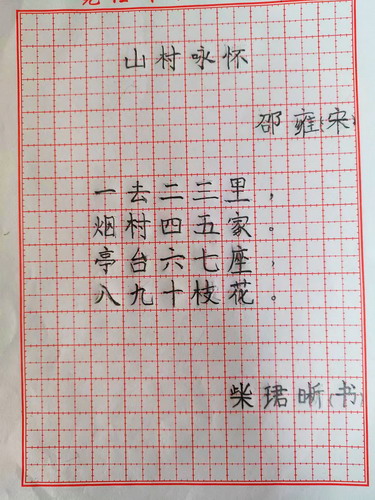 山村咏怀
邵雍(宋)
一去二三里，
烟村四五家。
亭台六七座，
八九十枝花。
柴珺晰(书)